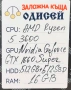 ЗАЛОЖНА КЪЩА
ОДИСЕЙ
CPU: AMD Ryzen
5 3600
GPU: Nvidia Geforce
GTX 1660 Super
16GB